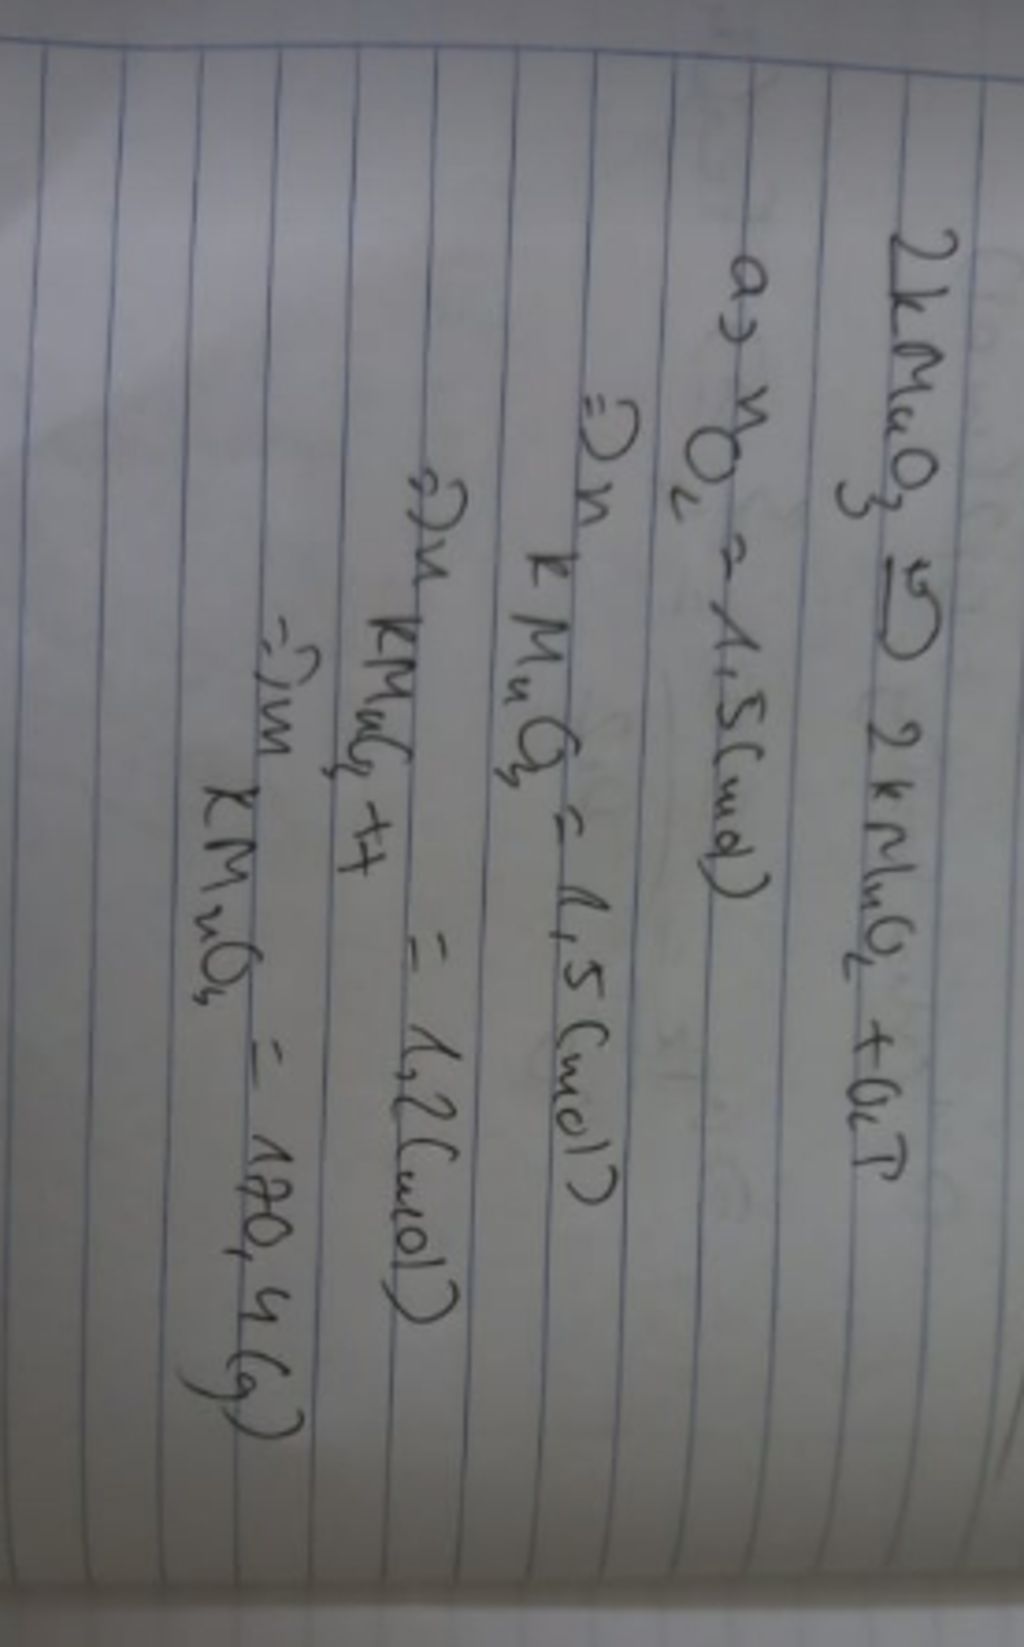 2KMnO3 t° → 2KMnO2 + O2↑
a) nO2 = 1,5(mol)
=> n KMnO3 = 1,5(mol)
=> n KMnO3 tt = 1,2(mol)
=> m KMnO3 = 170,4(g)